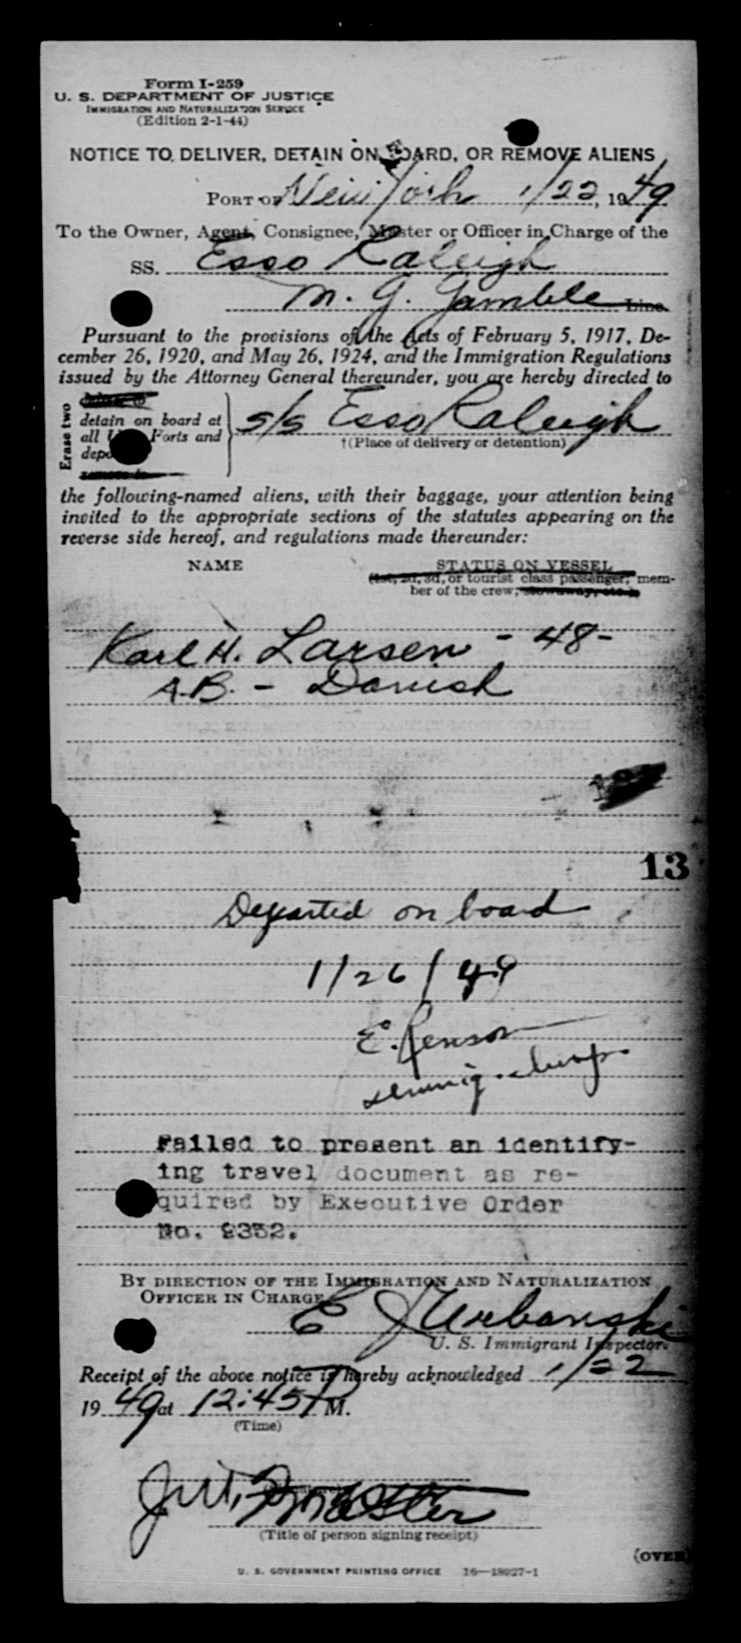 Form I-259
U. S. DEPARTMENT OF JUSTICE
IMMIGRATION AND NATURALIZATION SERVICE
(Edition 2-1-44)
NOTICE TO DELIVER, DETAIN ON BOARD, OR REMOVE ALIENS
PORT OF New York 1/22, 1949
To the Owner, Agent, Consignee, Master or Officer in Charge of the
SS. Esso Raleigh
M. G. Gamble Line.
Pursuant to the provisions of the Acts of February 5, 1917, De-
cember 26, 1920, and May 26, 1924, and the Immigration Regulations
issued by the Attorney General thereunder, you are hereby directed to
Erase two
detain on board at
all Ports and S/S Esso Raleigh
†(Place of delivery or detention)
the following-named aliens, with their baggage, your attention being
invited to the appropriate sections of the statutes appearing on the
reverse side hereof, and regulations made thereunder:
NAME STATUS ON VESSEL
(1st, 2d, 3d, or tourist class passenger; mem-
ber of the crew; stowaway, etc.)
Karl H. Larsen - 48-
A.B. - Danish
13
Departed on board
1/26/49
E.
Failed to present an identify-
ing travel document as re-
quired by Executive Order
No. 9352.
BY DIRECTION OF THE IMMIGRATION AND NATURALIZATION
OFFICER IN CHARGE
E J Urbanski
U. S. Immigrant Inspector.
Receipt of the above notice is hereby acknowledged 1/22
1949 at 12:45 P M.
(Time)
Master
(Title of person signing receipt)
(OVER)
U. S. GOVERNMENT PRINTING OFFICE 16—18027-1